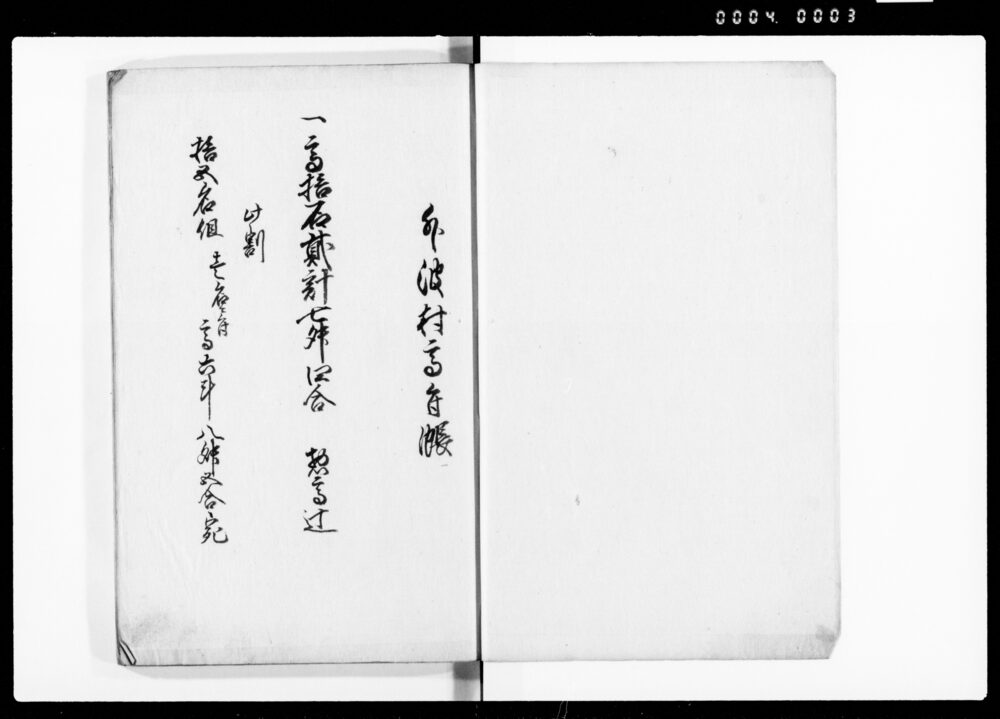 0004 0003
外波村高身帳
一高拾石貳斗七舛四合 惣高辻
此割
拾五名組 壱名身高六斗八舛五合宛